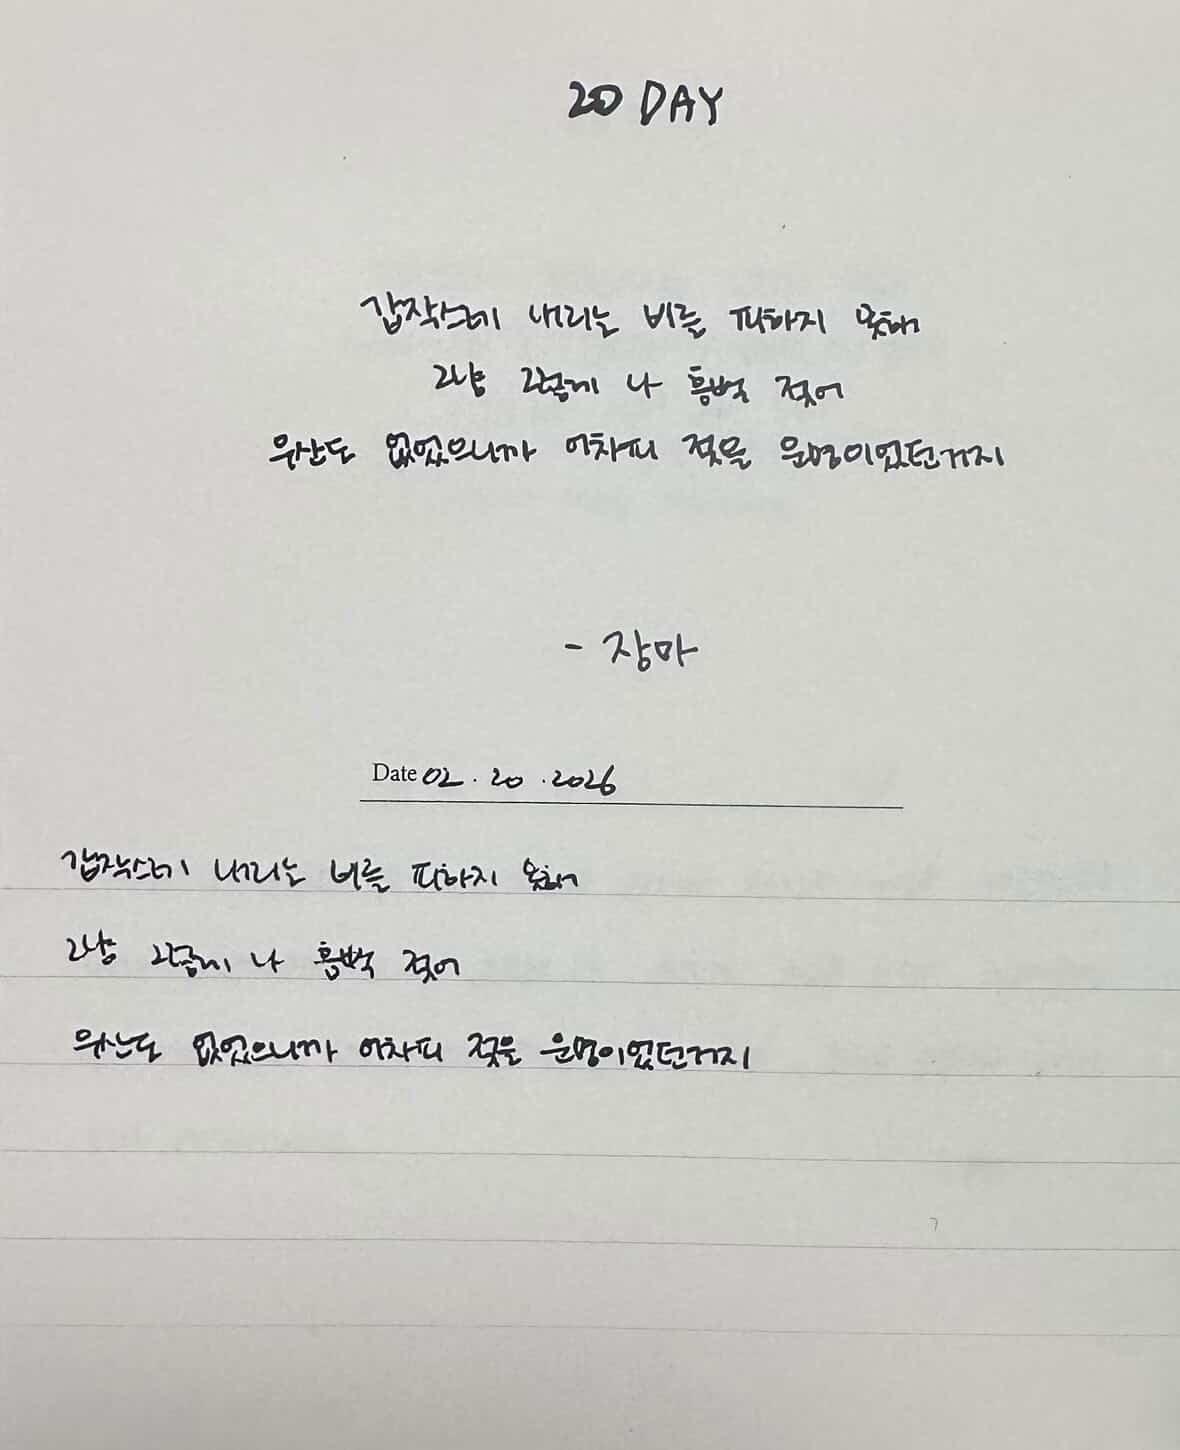 20 DAY
갑작스레 내리는 비를 피하지 못해
그냥 그렇게 나 흠뻑 젖어
우산도 없었으니까 어차피 젖을 운명이었던거지
- 장마
Date 02 . 20 . 2026
갑작스레 내리는 비를 피하지 못해
그냥 그렇게 나 흠뻑 젖어
우산도 없었으니까 어차피 젖을 운명이었던거지